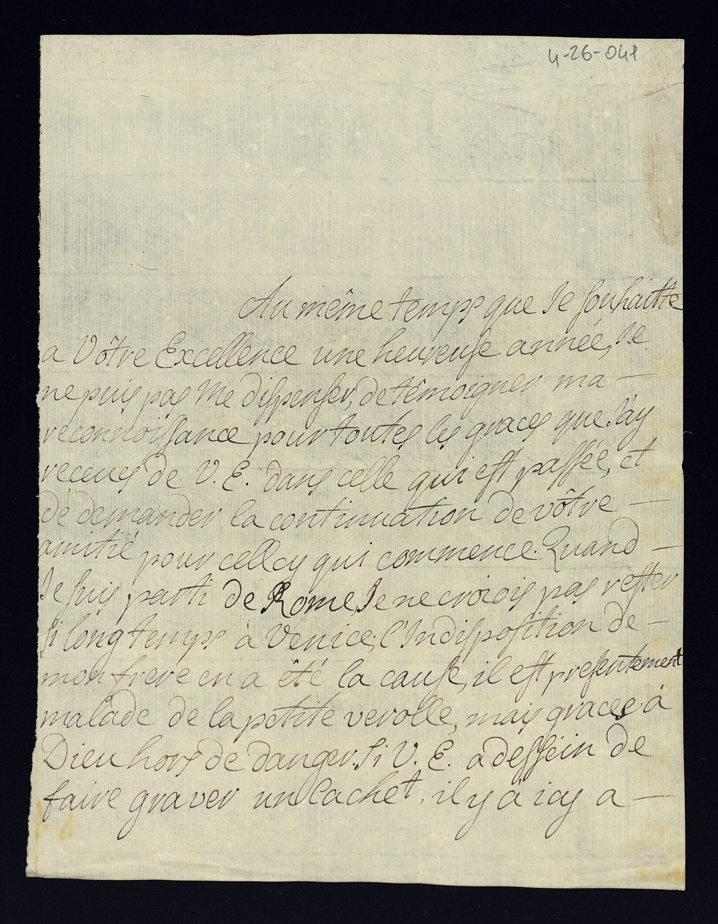 4-26-041
Au même temps que Je souhaitte
a Vôtre Excellence une heureuse année, Je
ne puis pas me dispenser, de têmoigner ma —
reconnoissance pour toutes les graces que J'ay
receues de V. E. dans celle qui est passée, et
de demander la continuation de vôtre —
amitié pour cellecy qui commence. Quand —
Je suis parti de Rome, Je ne croiois pas rester
si long temps à Venice, l'Indisposition de —
mon frere en a été la cause, il est presentement
malade de la petite verolle, mais graces à
Dieu hors de danger. Si V. E. a dessein de
faire graver un Cachet, il y a icy a —